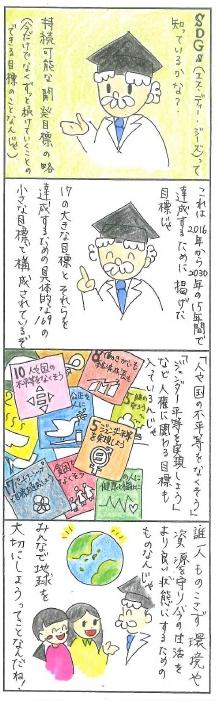 SDGs(エス・ディー・ジーズ)って
知っているかな?
持続可能な開発目標の略
(今だけでなくずっと続けていくことの
できる目標のことなんじゃ)
これは2016年から2030年の15年間で
達成するために掲げた
目標じゃ
17の大きな目標とそれらを
達成するための具体的な169の
小さな目標で構成されているぞ
「人や国の不平等をなくそう」
「ジェンダー平等を実現しよう」
など人権に関わる目標も
入っているんじゃ
10 人や国の
不平等をなくそう
8 働きがいも
経済成長も
5 ジェンダー平等
を実現しよう
平和と
公正を
貧困を
なくそう
健康と
誰一人ものこさず環境や
資源を守り今の生活を
より良い状態にするための
ものなんじゃ
みんなで地球を
大切にしようってことなんだね!